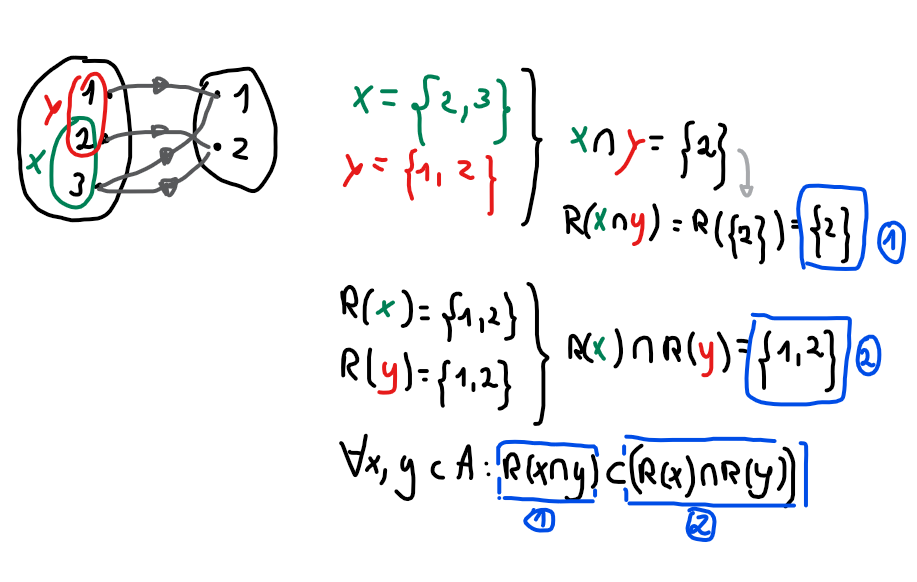 y
x
1
2
3
1
2
x = {2,3}
y = {1,2}
x∩y = {2}
R(x∩y) = R({2}) = {2} ①
R(x) = {1,2}
R(y) = {1,2}
R(x)∩R(y) = {1,2} ②
∀x, y ⊂ A : R(x∩y) ⊂ (R(x)∩R(y))
① ②